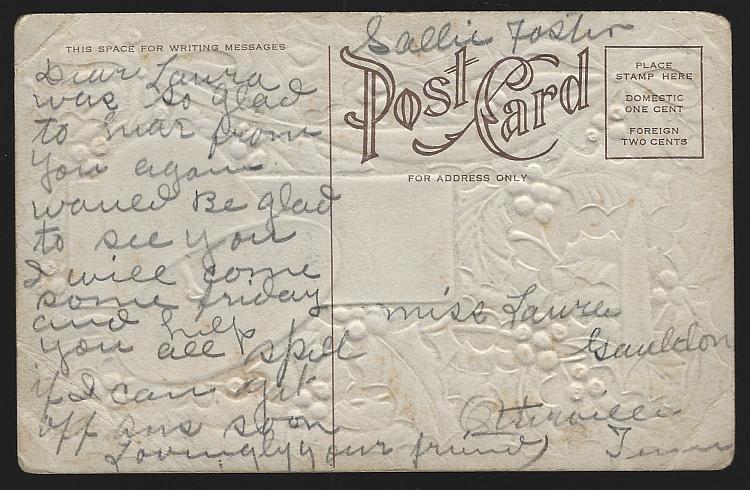 Sallie Foster
THIS SPACE FOR WRITING MESSAGES
Dear Laura
was so glad
to hear from
you again
woued Be glad
to see you
I will come
some friday
and help
you all spell
if I can git
off ans soon
Lovingly your friend
Post Card
FOR ADDRESS ONLY
PLACE
STAMP HERE
DOMESTIC
ONE CENT
FOREIGN
TWO CENTS
miss Laura
Gauldon
Tenn